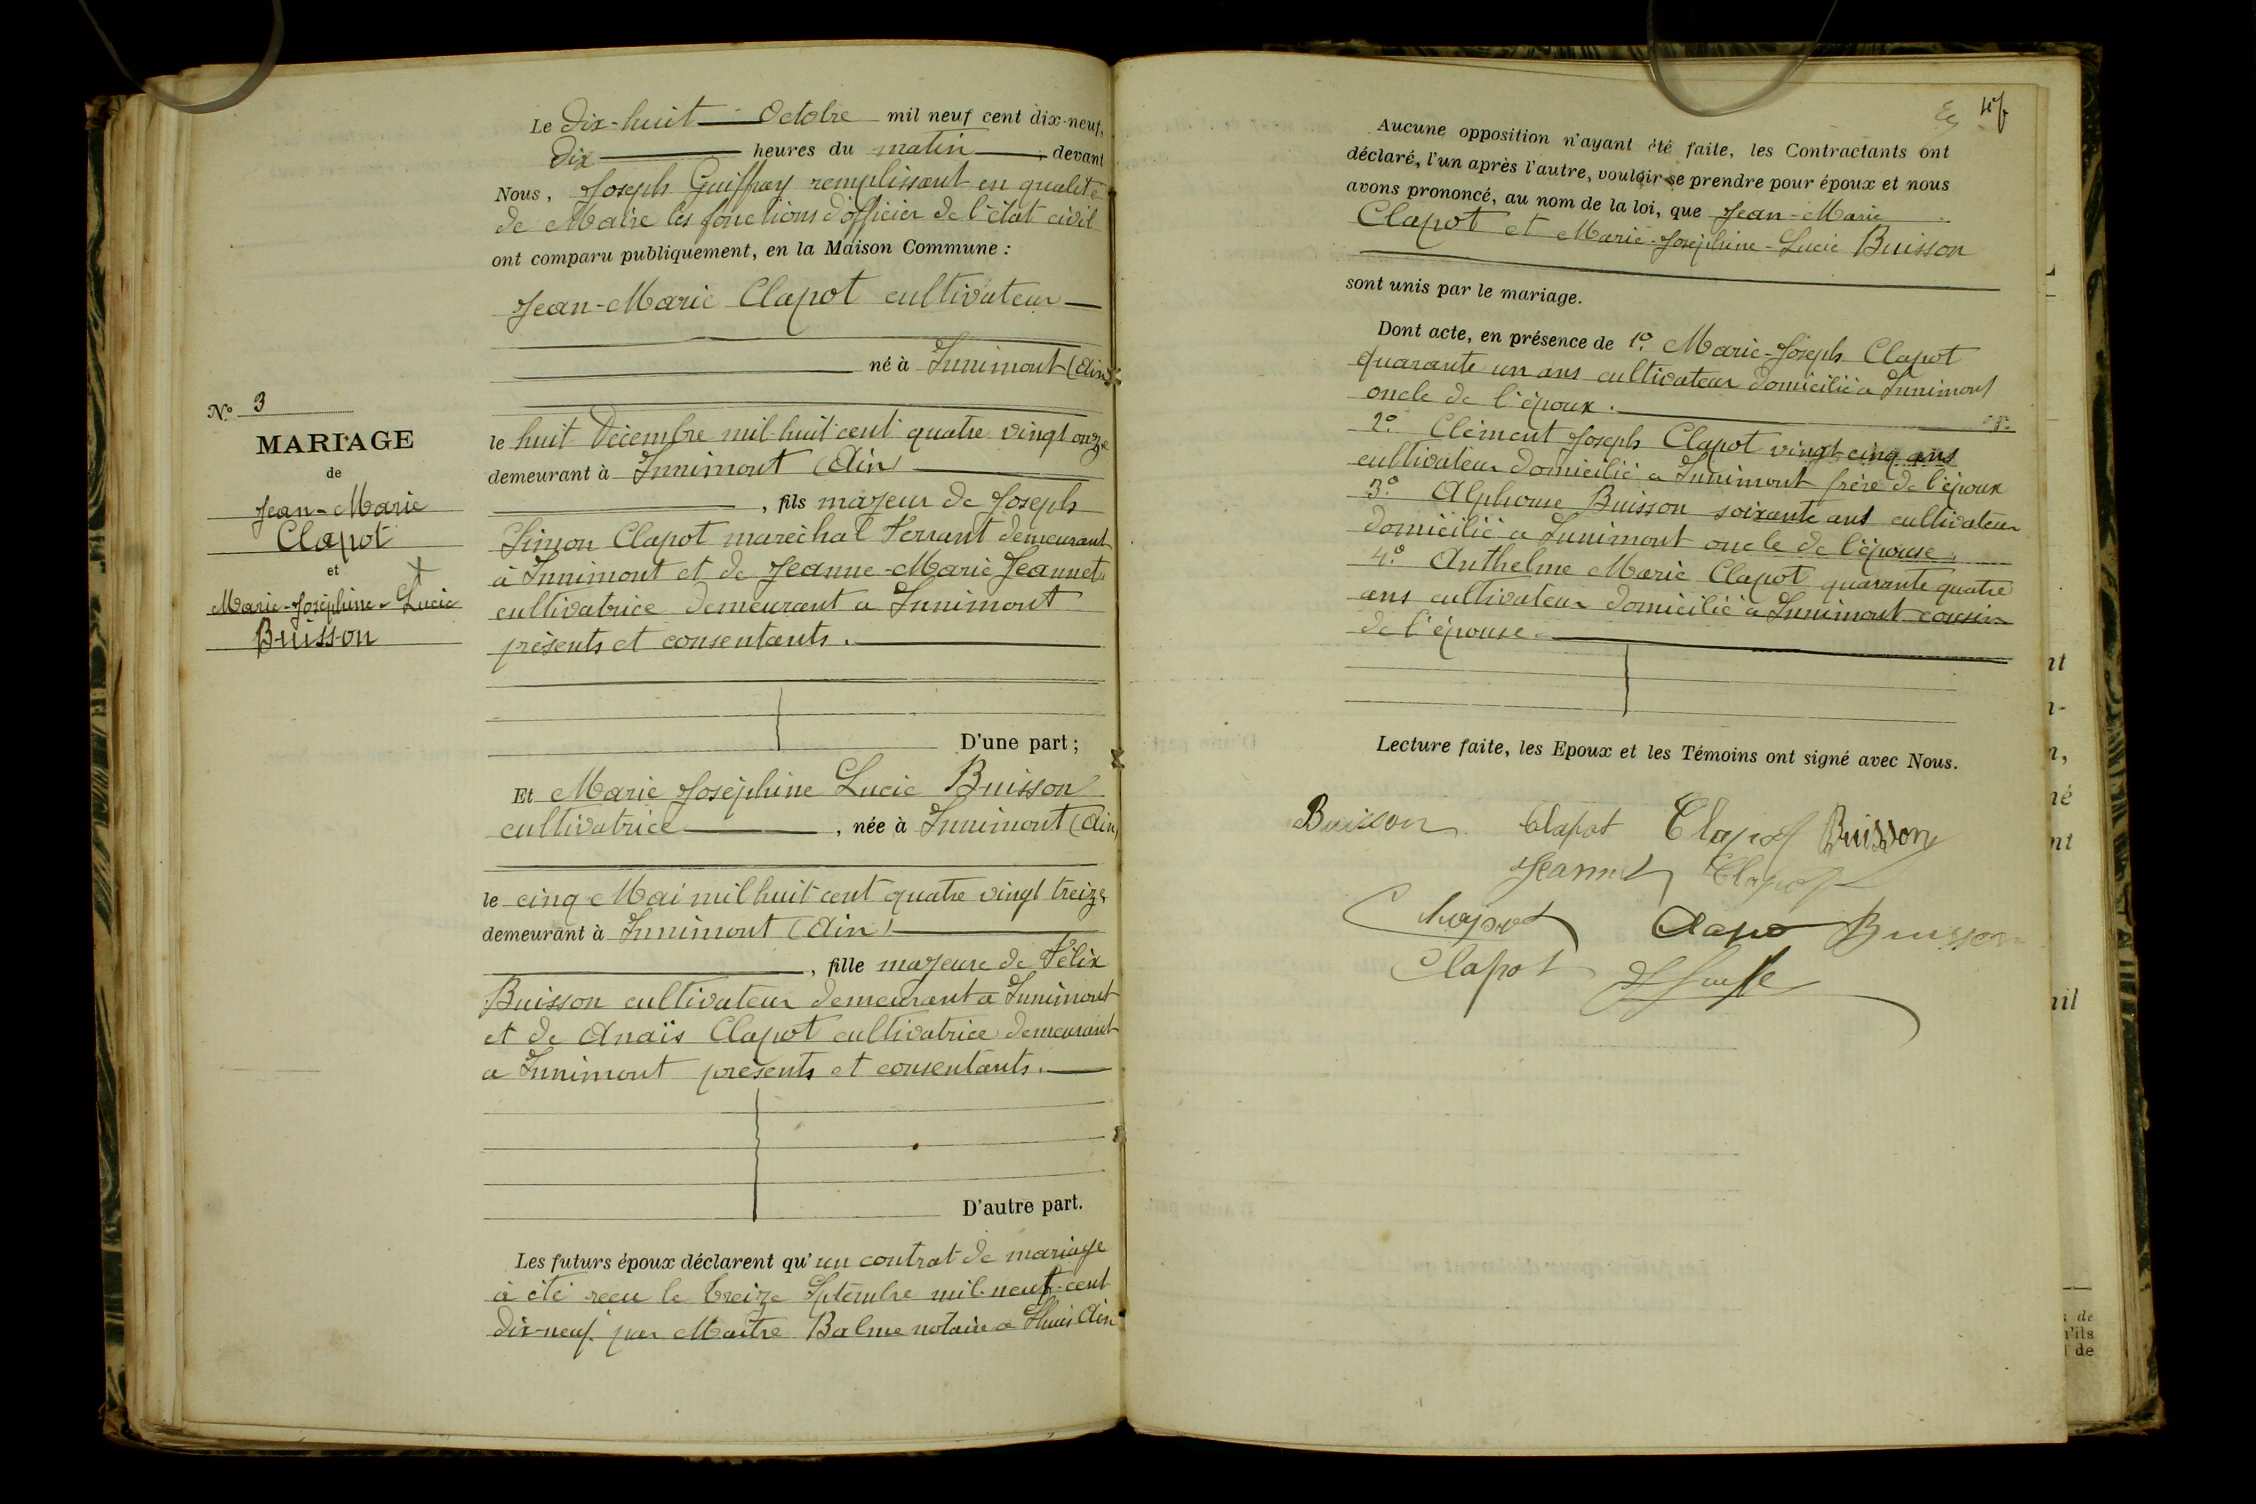 Le dix-huit octobre mil neuf cent dix-neuf,
dix heures du matin, devant
Nous, Joseph Guiffray remplissant en qualité
de Maire les fonctions d'officier de l'état civil
ont comparu publiquement, en la Maison Commune :
Jean-Marie Clapot cultivateur
né à Innimont (Ain)
le huit Décembre mil huit cent quatre vingt onze
demeurant à Innimont (Ain)
, fils majeur de Joseph
Simon Clapot maréchal Ferrant demeurant
à Innimont et de Jeanne-Marie Jeannet
cultivatrice demeurant a Innimont
présents et consentants.
D'une part ;
Et Marie Joséphine Lucie Buisson
cultivatrice, née à Innimont (Ain)
le cinq Mai mil huit cent quatre vingt treize
demeurant à Innimont (Ain)
, fille majeure de Félix
Buisson cultivateur demeurant a Innimont
et de Anaïs Clapot cultivatrice demeurant
a Innimont présents et consentants.
D'autre part.
Les futurs époux déclarent qu'un contrat de mariage
à été recu le treize Septembre mil-neuf-cent
dix-neuf par Maitre Balme notaire a Lhuis Ain
No. 3
MARIAGE
de
Jean-Marie
Clapot
et
Marie-Joséphine-Lucie
Buisson
Aucune opposition n'ayant été faite, les Contractants ont
déclaré, l'un après l'autre, vouloir se prendre pour époux et nous
avons prononcé, au nom de la loi, que Jean-Marie
Clapot et Marie-Joséphine-Lucie Buisson
sont unis par le mariage.
Dont acte, en présence de 1o. Marie-Joseph Clapot
quarante un ans cultivateur domicilié a Innimont
oncle de l'époux.
2o. Clément Joseph Clapot vingt-cinq ans
cultivateur domicilié a Innimont frère de l'époux
3o. Alphonse Buisson soixante ans cultivateur
domicilié a Innimont oncle de l'épouse.
4o. Anthelme Marie Clapot quarante quatre
ans cultivateur domicilié a Innimont cousin
de l'épouse.
Lecture faite, les Epoux et les Témoins ont signé avec Nous.
Buisson Clapot Clapot Buisson
Jeannet Clapot
Clapot Clapo Buisson
Clapot